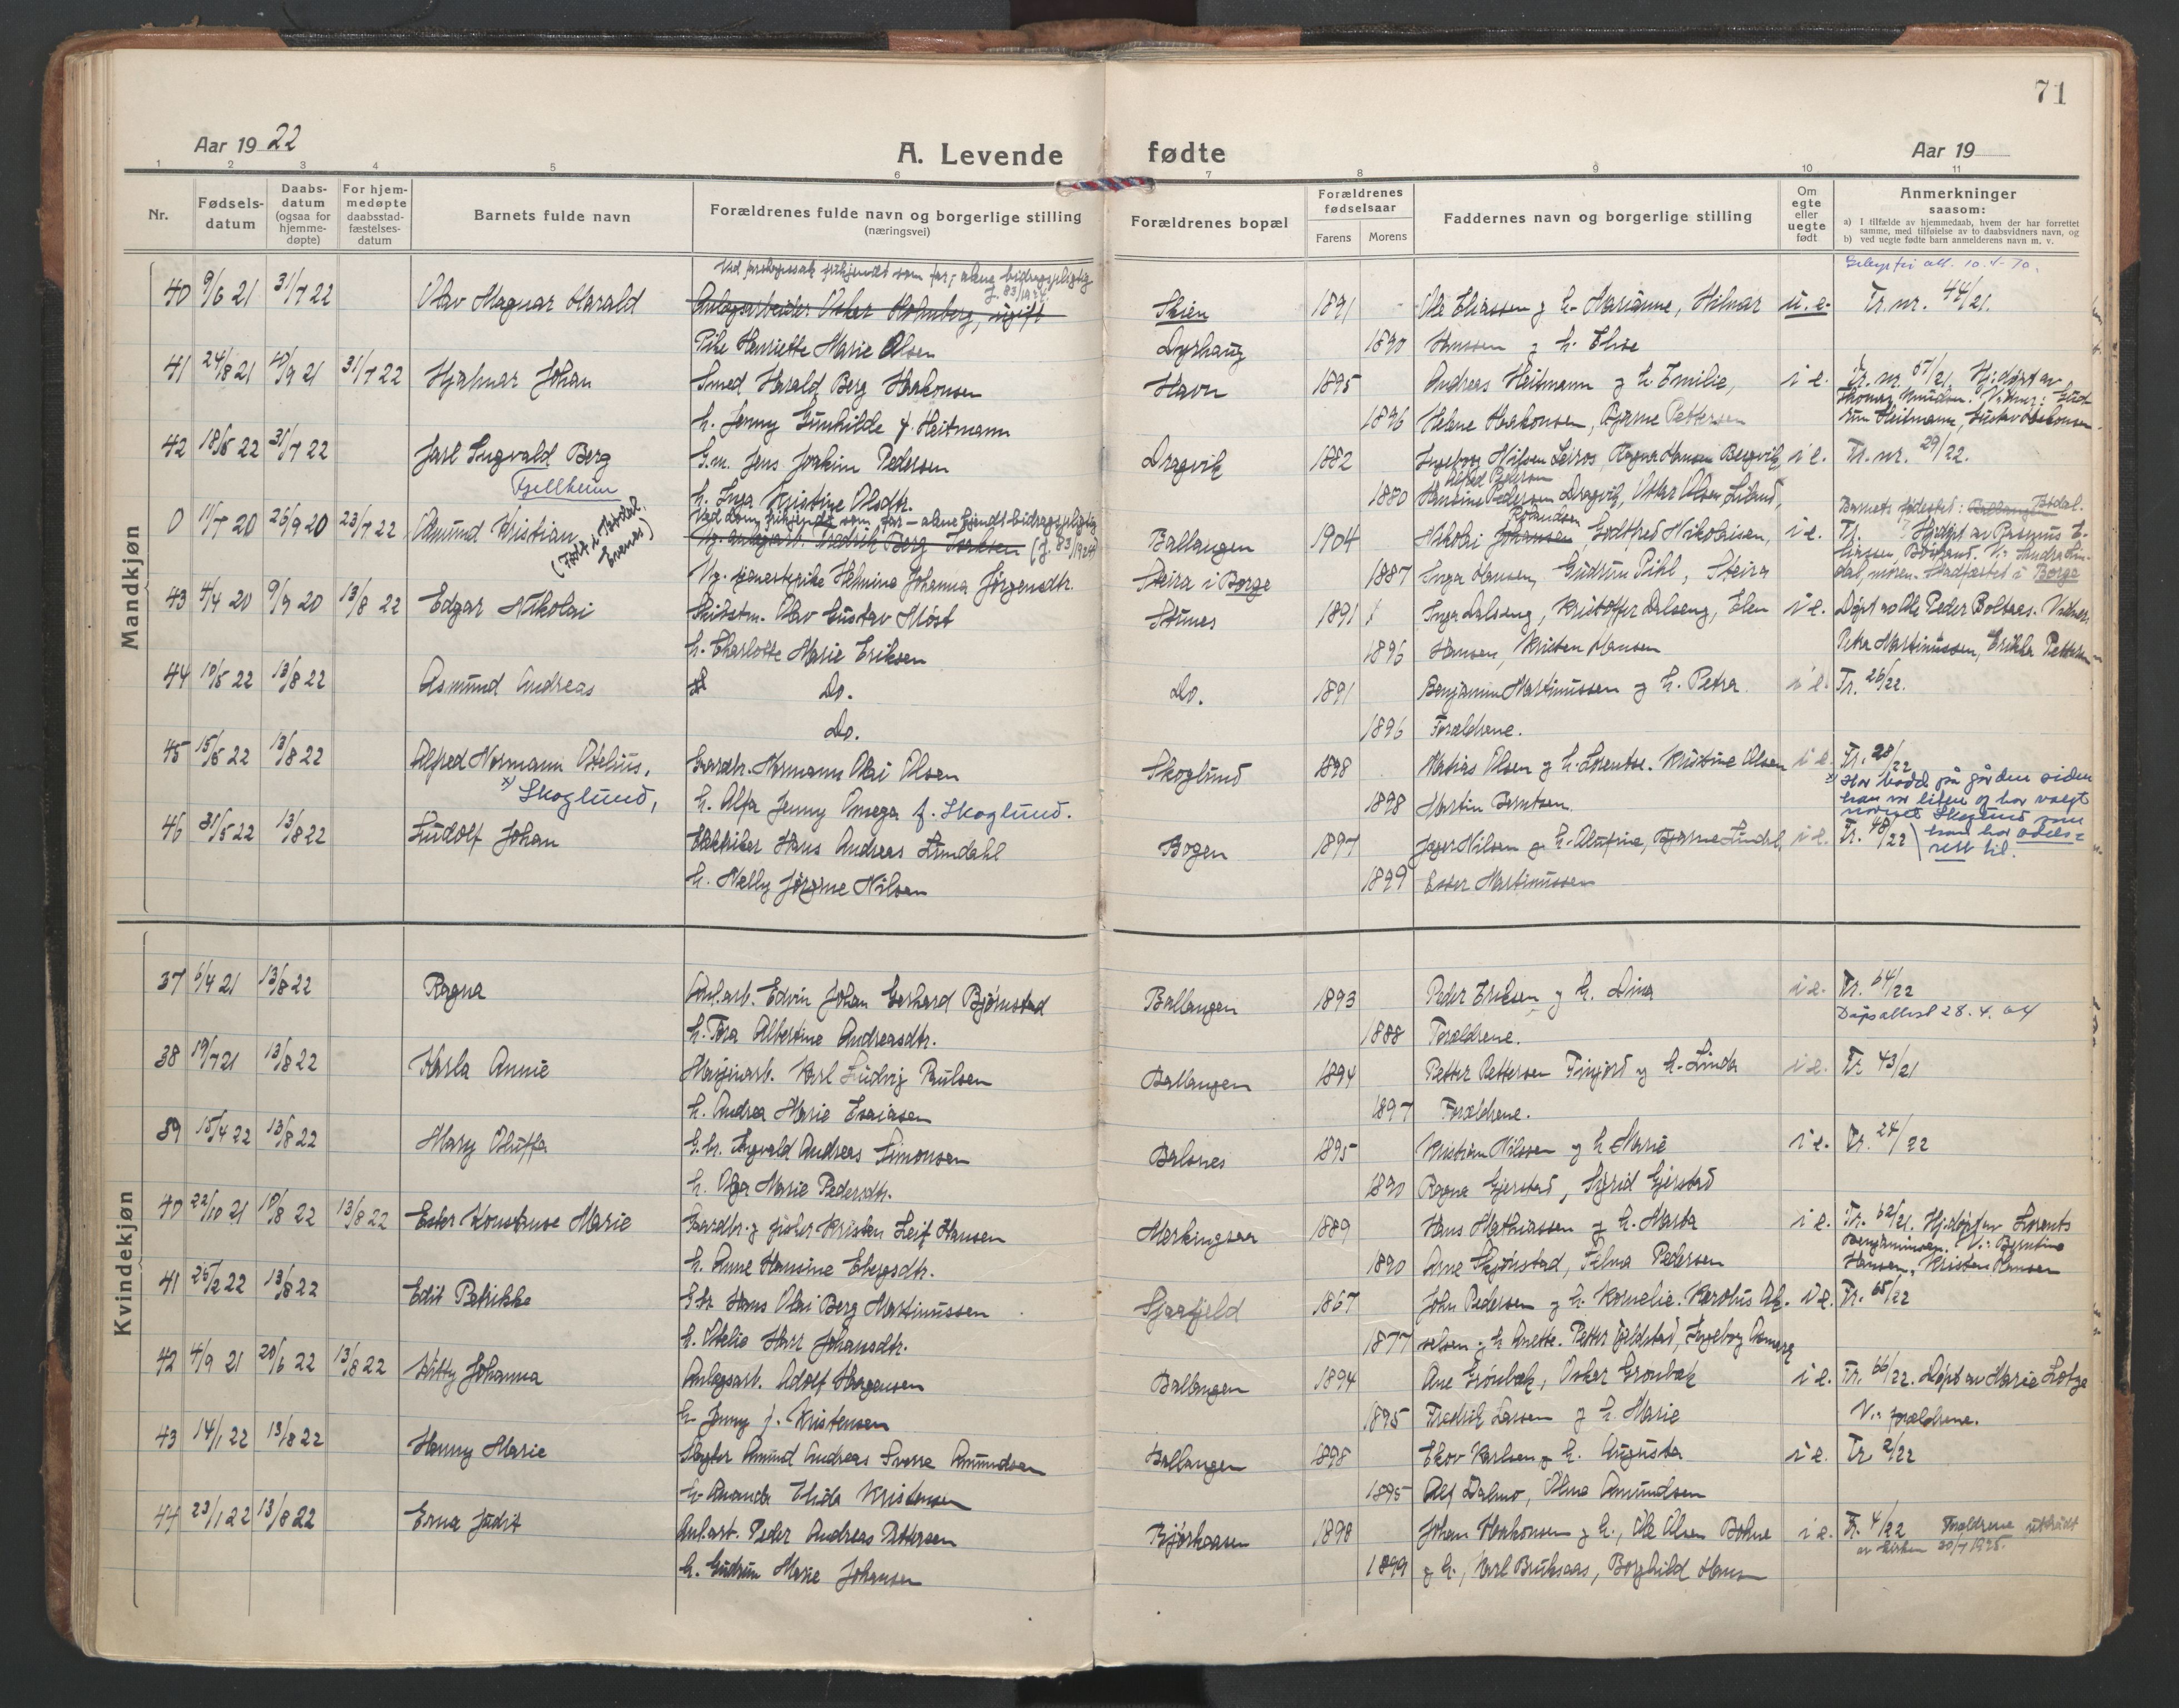 71
Aar 19 22
A. Levende fødte
Aar 19
1 2 3 4 5 6 7 8 9 10 11
Nr.
Fødselsdatum
Daabsdatum (ogsaa for hjemmedøpte)
For hjemmedøpte daabsstadfæstelsesdatum
Barnets fulde navn
Forældrenes fulde navn og borgerlige stilling (næringsvei)
Forældrenes bopæl
Forældrenes fødselsaar
Farens Morens
Faddernes navn og borgerlige stilling
Om egte eller uegte født
Anmerkninger saasom:
a) I tilfælde av hjemmedaab, hvem der har forrettet samme, med tilføielse av to daabsvidners navn, og
b) ved uegte fødte barn anmelderens navn m. v.
Mandkjøn
som far, alene bidragspligtig
J. 83/1924
40 9/6 21 31/7 22 Olav Magnar Harald Anlægsarbeider Oskar Holmberg, ugift Skien 1891 Ole Eliassen g h. Marianne, Hilmar u. e. Tr. nr. 44/21.
Pike Henriette Marie Olsen Dyrhaug 1890 Hanssen g h. Elise
41 24/8 21 31/7 22 Hjalmar Johan Smed Harald Berg Haakonsen Havn 1895 Andreas Heitmann g h. Emilie, i e. Tr. nr. Hj. døpt av
Thomas Knudsen. Vidner: Gud
h. Jenny Gunhilde f. Heitmann 1896 Helene Haakonsen, Bjarne Pettersen run Heitmann, Gustav Haakonsen
42 18/5 22 31/7 22 Jarl Ingvald Berg G.m. Jens Joakim Pedersen Dragvik 1882 Ingeborg Nilsen Leiros, Ragna Hansen Bergvik, i e. Tr. nr. 29/22.
Fjellheim
Alfred Pedersen
h. Inga Kristine Olsdtr. 1880 Hansine Pedersen Dragvik, Oskar Olsen Liland,
Ved dom frikjendt som far – alene kjendt bidragspligtig
0 11/7 20 26/9 20 23/7 22 Amund Kristian Ug. anlægsarb. Fredrik Berg Isaksen (J. 83/1924) Ballangen 1904 Nikolai Johansen, Godtfred Nikolaisen, i e. Tr. Hjdøpt av Rasmus E-
(Født i Evenes)
Ug. tjenestepike Helmine Johanna Jørgensdtr. Steira i Borge 1887 Inga Hansen, Gudrun Pihl, Steira Stadfæstet i Borge
43 4/4 20 9/9 20 13/8 22 Edgar Nikolai Olav Gustav Høst Stunes 1891 Inga Dalseng, Kristoffer Dalseng, Elen i e. Døpt av Ole Peder Bolteas. Vidner:
h. Charlotte Marie Eriksen 1896 Hansen, Kristen Hansen Petra Martinussen, Erikka Pettersen
44 10/5 22 13/8 22 Asmund Andreas Do. Do. 1891 Benjamin Martinussen g h. Petra i e. Tr. 26/22.
Do. 1896 Forældrene.
45 15/5 22 13/8 22 Alfred Normann Otelius, Gaardbr. Normann Olai Olsen Skoglund 1898 Matias Olsen g h. Lorentse. Kristine Olsen i e. Tr. 28/22
x) Skoglund, h. Alfa Jenny Omega f. Skoglund. 1898 Martin Berntsen.
x) Har bodd på gården siden
han var liten og har valgt
navnet Skoglund som
han har odels=
rett til.
46 31/5 22 13/8 22 Ludolf Johan Elektriker Hans Andreas Lundahl Bogen 1897 Jørger Nilsen g h. Olufine, Bjarne Lundal, i e. Tr. 48/22
h. Nelly Jørgine Nilsen 1899 Ester Martinussen
Kvindekjøn
37 6/4 21 13/8 22 Ragna Anl. arb. Edvin Johan Gerhard Bjørnstad Ballangen 1893 Peder Eriksen g h. Dina i e. Tr. 64/22
Dåpsattest 28. 4. 64
h. Tora Albertine Andreasdtr. 1888 Forældrene.
38 19/7 21 13/8 22 Karla Annie Karl Ludvig Paulsen Ballangen 1894 Petter Pettersen Finjord g h. Linda i e. Tr. 43/21
h. Andrea Marie Esaiasen 1897 Forældrene.
39 15/4 22 13/8 22 Mary Oluffa G.br. Ingvald Andreas Simonsen Balsnes 1895 Kristian Nilssen g h Marie i e. Tr. 24/22
h. Olga Marie Pedersdtr. 1890 Ragna Gjerstad, Sigrid Gjerstad
40 22/10 21 10/8 22 13/8 22 Ester Konstanse Marie Gaardbr. g fisker Kristen Leif Hansen Merkingsaa 1889 Hans Mathiassen g h. Marta i e. Tr. 62/21. Hj. døpt av Lorents
Benjaminsen. V.: Berntine
h. Anne Hansine Ebergsdtr. 1890 Arne Skjønstad, Selma Pedersen Hansen, Kristen Hansen
41 26/2 22 13/8 22 Edit Petrikke G.br. Hans Olai Berg Martinussen Sjaafjeld 1867 John Pedersen g h. Kornelie. Karolus Ak- i e. Tr. 65/22
h. Otelie Harr Johansdtr. 1877 selsen g h Anette. Petter Fjeldstad, Ingeborg
42 4/9 21 20/6 22 13/8 22 Kitty Johanna Anlægsarb. Adolf Hagensen Ballangen 1894 Ane Grønbæk, Oskar Grønbæk i e. Tr. 66/22. Døpt av Marie Lotze
h. Jenny f. Kristensen 1895 Fredrik Larsen g h. Marie V.: forældrene.
43 14/1 22 13/8 22 Hanny Marie Amund Andreas Sverre Amundsen Ballangen 1898 Karlsen g h. Augusta i e. Tr 2/22
h. Amanda Elida Kristensen 1895 Alf Dalmo, Olma Amundsen
44 23/1 22 13/8 22 Erna Judit Anl. arb. Peder Andreas Pettersen Bjørkaasen 1898 Johan Haakonsen g h., Ole Olsen Bohne i e. Tr. 4/22 Forældrene utträdt
av kirken 20/7 1925.
h. Gudrun Marie Johansen 1899 g h., Karl Bruksaas, Borghild Hans